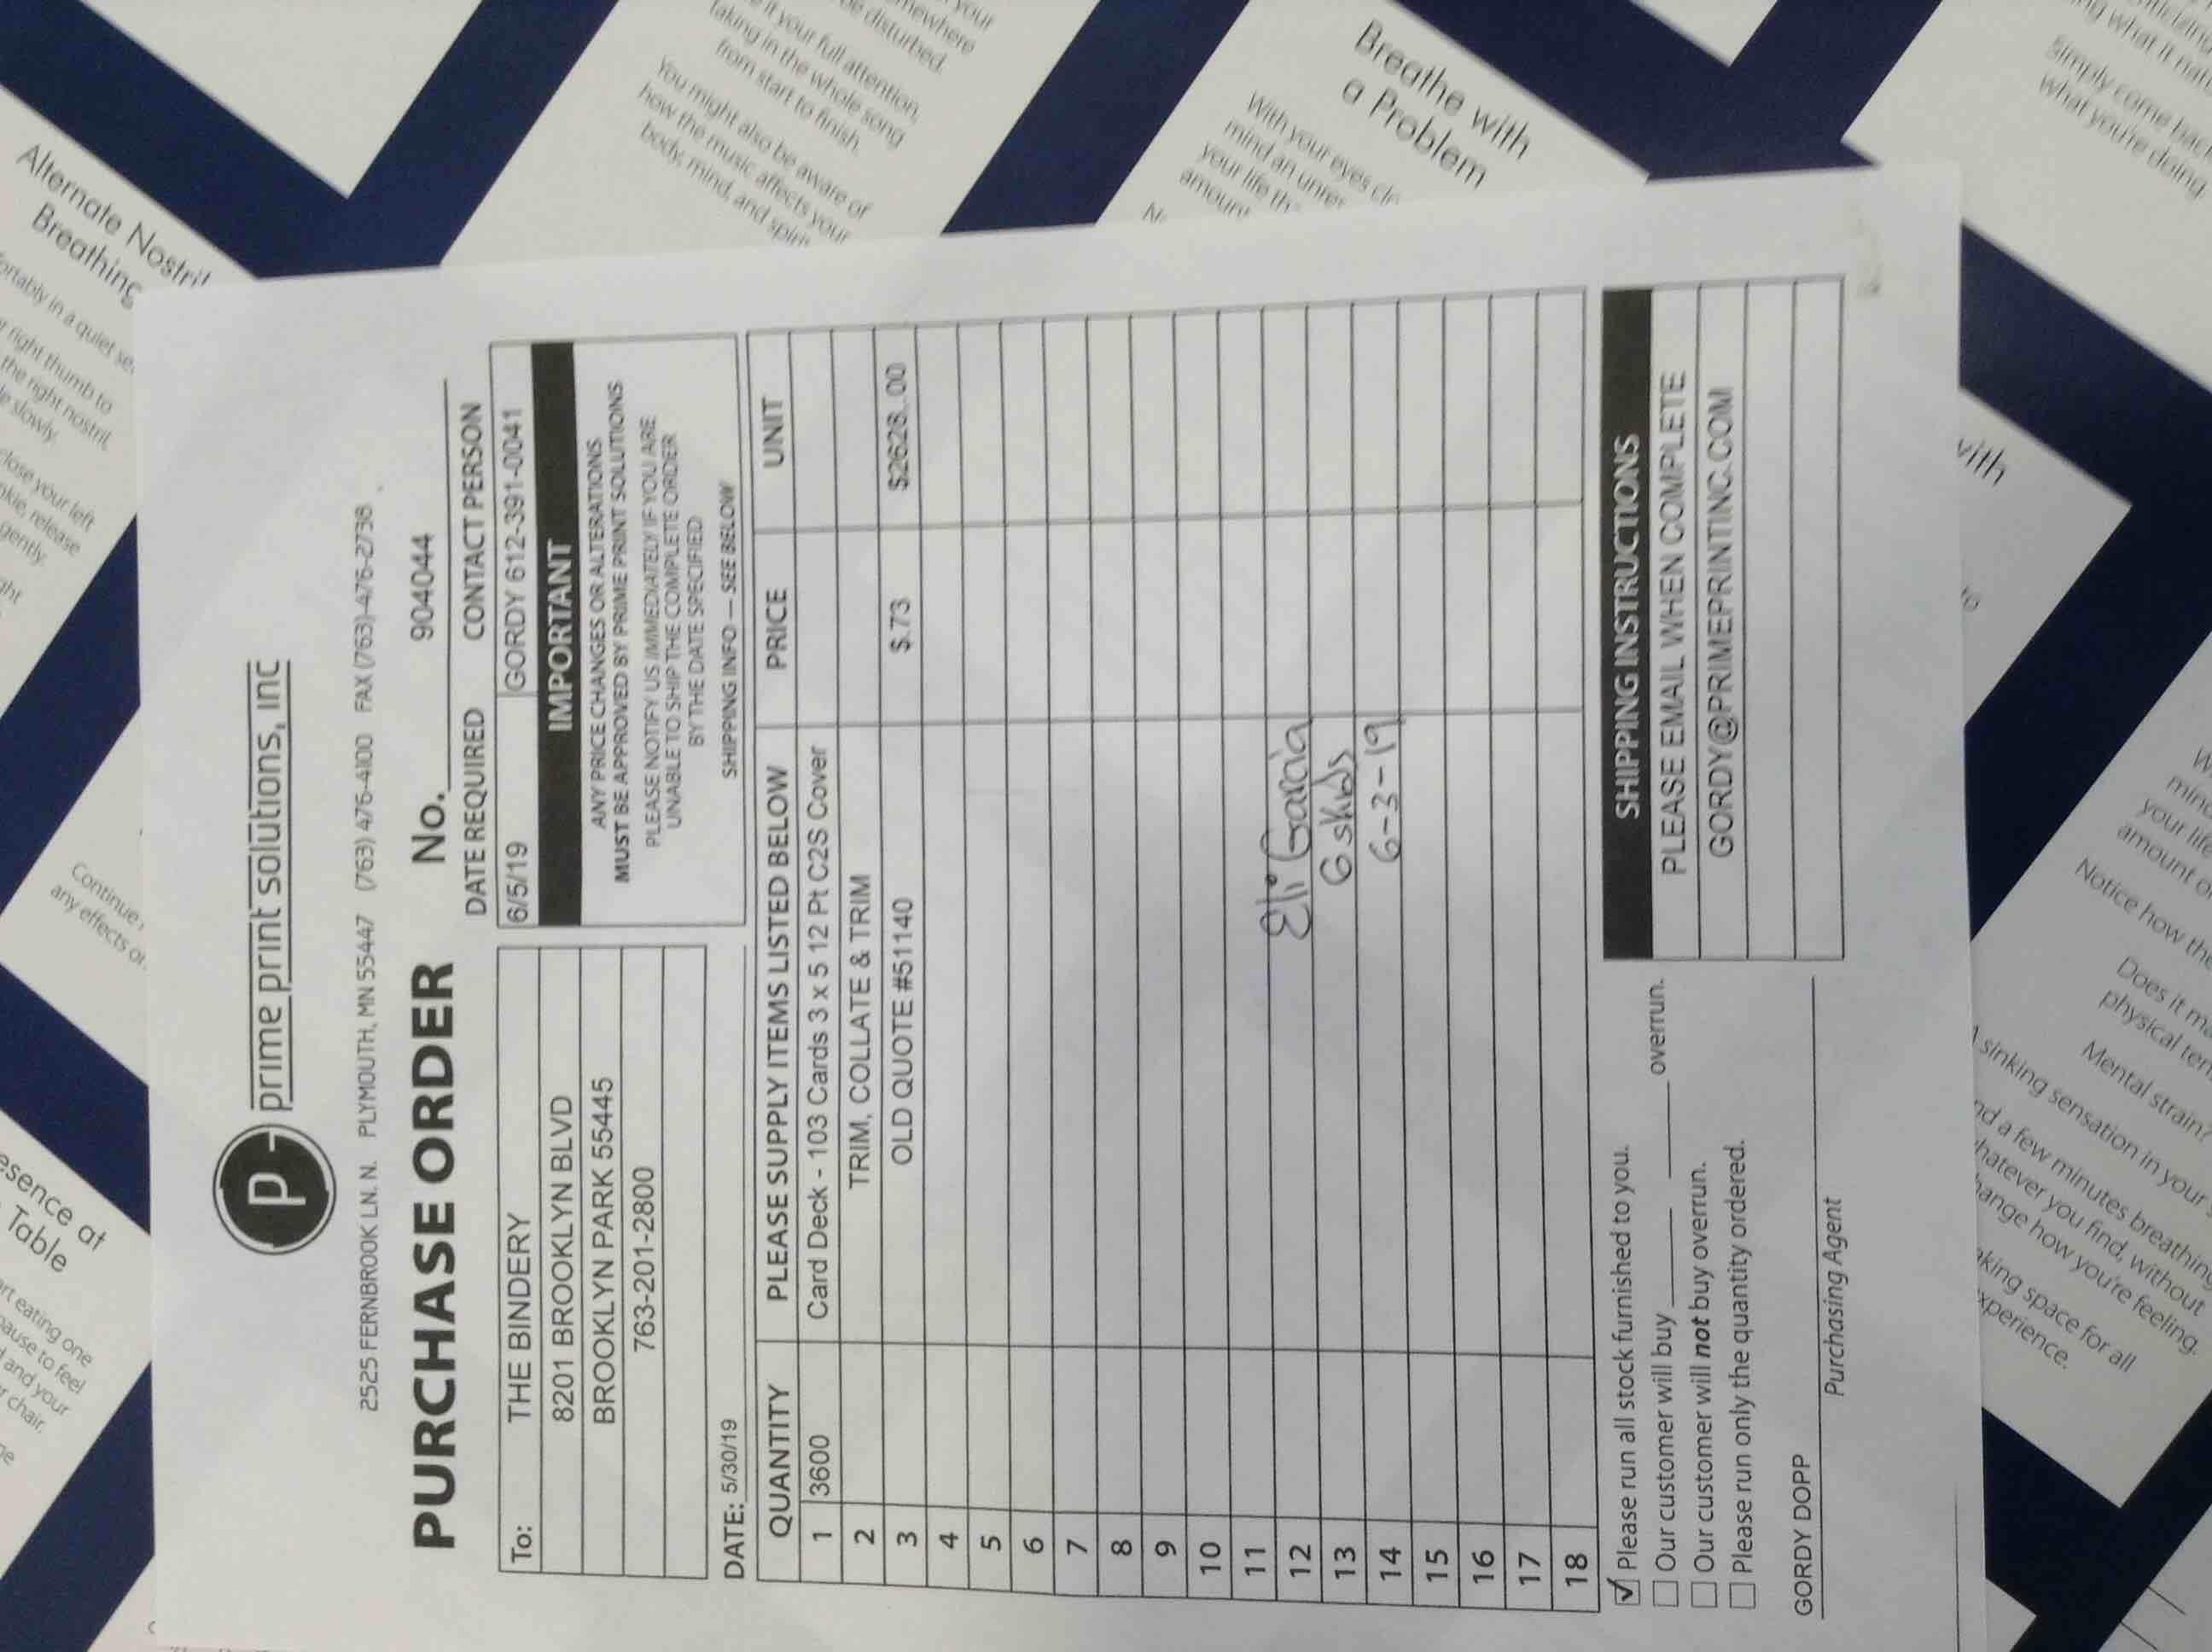 prime print solutions, inc
2525 FERNBROOK LN. N. PLYMOUTH, MN 55447 (763) 476-4100 FAX (763)-476-2738
PURCHASE ORDER No. 904044
DATE REQUIRED CONTACT PERSON
To: THE BINDERY
8201 BROOKLYN BLVD
BROOKLYN PARK 55445
763-201-2800
6/5/19 GORDY 612-391-0041
IMPORTANT
ANY PRICE CHANGES OR ALTERATIONS
MUST BE APPROVED BY PRIME PRINT SOLUTIONS
PLEASE NOTIFY US IMMEDIATELY IF YOU ARE
UNABLE TO SHIP THE COMPLETE ORDER
BY THE DATE SPECIFIED
SHIPPING INFO – SEE BELOW
DATE: 5/30/19
QUANTITY PLEASE SUPPLY ITEMS LISTED BELOW PRICE UNIT
1 3600 Card Deck - 103 Cards 3 x 5 12 Pt C2S Cover
2 TRIM, COLLATE & TRIM
3 OLD QUOTE #51140 $.73 $2628..00
4
5
6
7
8
9
10
11
12 Eli Garcia
13 6 skids
14 6-3-19
15
16
17
18
Please run all stock furnished to you.
Our customer will buy overrun.
Our customer will not buy overrun.
Please run only the quantity ordered.
GORDY DOPP
Purchasing Agent
SHIPPING INSTRUCTIONS
PLEASE EMAIL WHEN COMPLETE
GORDY@PRIMEPRINTINC.COM
Alternate Nostril
Breathing
in a quiet
right thumb to
the right nostril
slowly.
close your left
release
gently.
Continue
any effects
your full attention,
taking in the whole song
from start to finish.
You might also be aware of
how the music affects your
body, mind, and spirit
Breathe with
a Problem
With your eyes
mind an
your life
amount
Simply come back
what you're doing
with
your life
amount
Notice how the
Does it
physical
Mental strain?
sinking sensation in your
a few minutes breathing
whatever you find, without
how you're feeling.
space for all
experience.
at
Table
eating one
pause to feel
and your
chair.